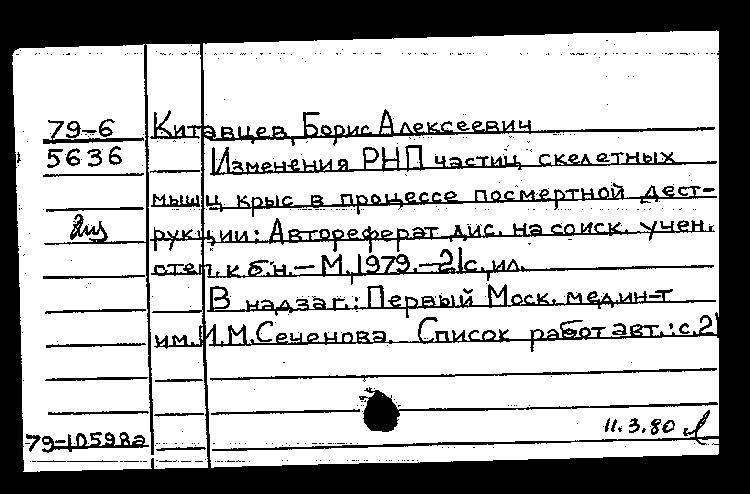 79-6 Китавцев, Борис Алексеевич
5636 Изменения РНП частиц скелетных
мышц крыс в процессе посмертной дест-
рукции: Автореферат дис. на соиск. учен.
степ. к.б.н. — М., 1979. — 21с., ил.
В надзаг.: Первый Моск. мед. ин-т
им. И.М. Сеченова. Список работ авт.: с.21
79-10598а
11.3.80